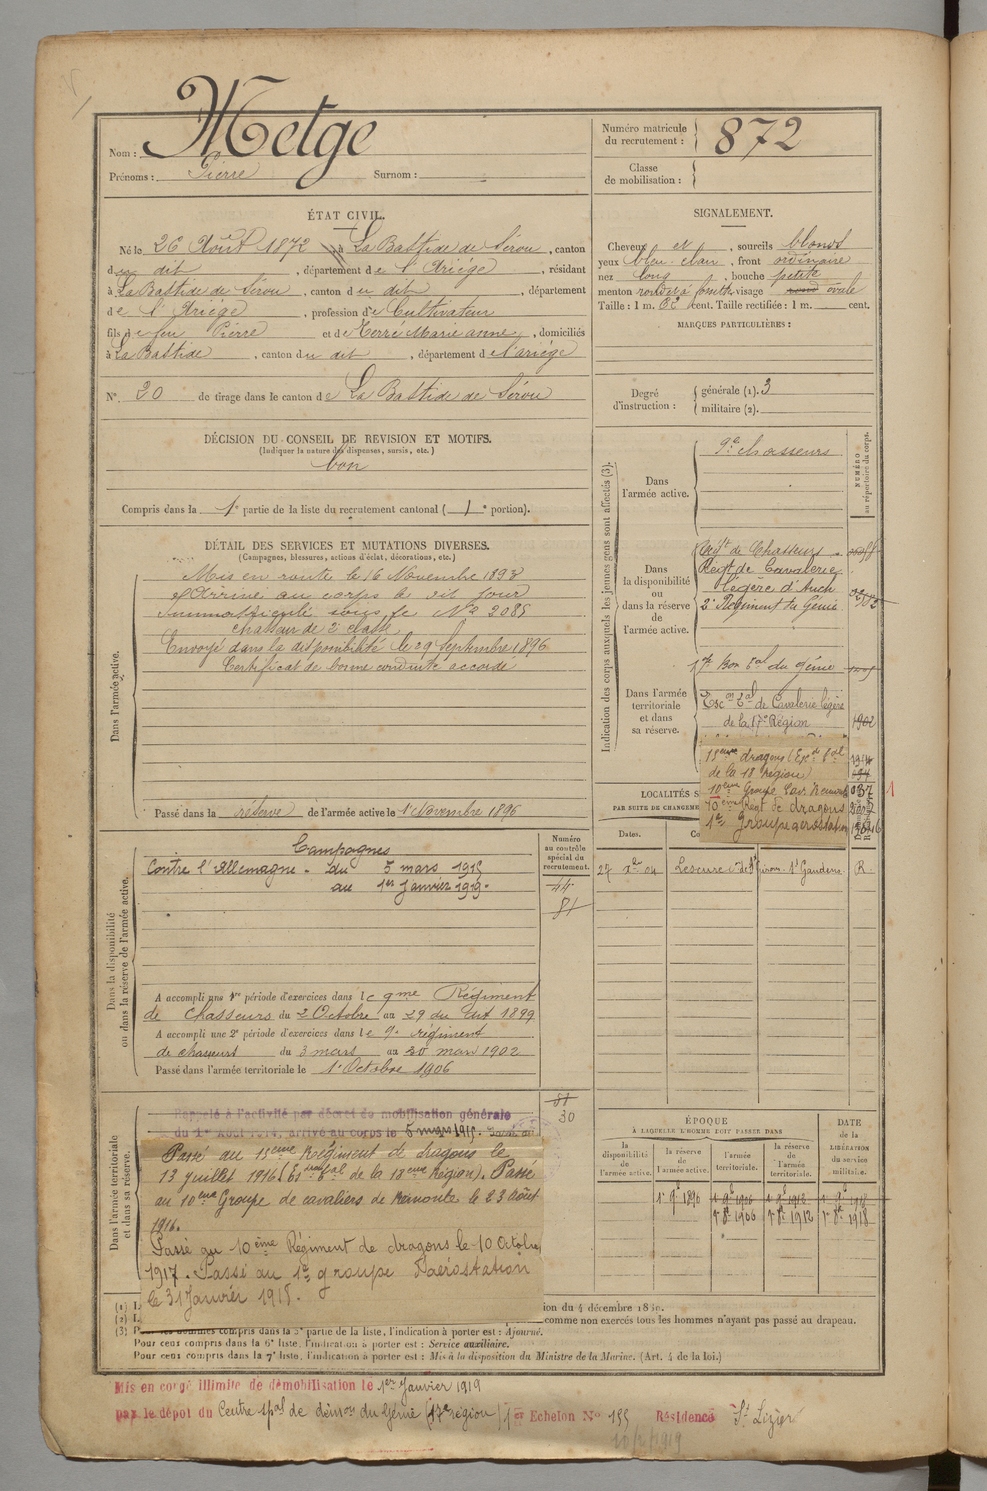 Nom : Metge
Prénoms : Pierre Surnom :
Numéro matricule du recrutement : 872
Classe de mobilisation :
ÉTAT CIVIL.
Né le 26 Août 1872 à La Bastide de Sérou, canton
du dit, département de l'Ariège, résidant
à La Bastide de Sérou, canton du dit, département
de l'Ariège, profession de Cultivateur
fils de feu Pierre et de Terré Marie anne, domiciliés
à La Bastide, canton du dit, département de l'ariège
N° 30 de tirage dans le canton de La Bastide de Sérou
DÉCISION DU CONSEIL DE REVISION ET MOTIFS.
(Indiquer la nature des dispenses, sursis, etc.)
bon
Compris dans la 1e partie de la liste du recrutement cantonal (1e portion).
SIGNALEMENT.
Cheveux et, sourcils blonds
yeux bleu clair, front ordinaire
nez long, bouche petite
menton rond visage ovale
Taille : 1 m. cent. Taille rectifiée : 1 m. cent.
MARQUES PARTICULIÈRES :
Degré d'instruction :
générale (1). 3
militaire (2).
DÉTAIL DES SERVICES ET MUTATIONS DIVERSES.
(Campagnes, blessures, actions d'éclat, décorations, etc.)
Dans l'armée active.
Mis en route le 16 Novembre 1893
Arrivé au corps le dit jour
Immatriculé sous le N° 2085
chasseur de 2e classe
Envoyé dans la disponibilité le 29 Septembre 1896
Certificat de bonne conduite accordé
Passé dans la réserve de l'armée active le 1er Novembre 1896
Indication des corps auxquels les jeunes gens sont affectés (3).
NUMÉRO au répertoire du corps.
Dans l'armée active.
9e chasseurs
Dans la disponibilité ou dans la réserve de l'armée active.
Régt de Chasseurs
Régt de Cavalerie
légère d'Auch
2e Régiment du Génie
1er Bon Tal du génie
Dans l'armée territoriale et dans sa réserve.
Escon Tal de Cavalerie légère
de la 17e Région 1902
15eme dragons (Escd Tal
de la 18 région)
10eme Groupe 037
10eme Regt de dragons
1er Groupe aerostation
LOCALITÉS S
PAR SUITE DE CHANGEME
Dates.
27 Xbre 04 St Girons St Gaudens R
Dans la disponibilité ou dans la réserve de l'armée active.
Numéro au contrôle spécial du recrutement.
44
81
Campagnes
Contre l'Allemagne. du 5 mars 1915
au 1er Janvier 1919.
A accompli une 1re période d'exercices dans le 9me Régiment
de Chasseurs du 2 Octobre au 29 du dit 1899
A accompli une 2e période d'exercices dans le 9e régiment
de chasseurs du 3 mars au 30 mars 1902
Passé dans l'armée territoriale le 1er Octobre 1906
81
30
Dans l'armée territoriale et dans sa réserve.
Rappelé à l'activité par décret de mobilisation générale
du 1er Août 1914, arrivé au corps le 5 mars 1915.
Passé au 15eme Régiment de dragons le
13 juillet 1916 (Escon Tal de la 18eme Région). Passé
au 10eme Groupe de cavaliers de remonte le 23 Août
1916.
Passé au 10ème Régiment de dragons le 10 Octobre
1917. Passé au 1er groupe d'aérostation
le 31 Janvier 1918.
ÉPOQUE
À LAQUELLE L'HOMME DOIT PASSER DANS
la disponibilité de l'armée active.
la réserve de l'armée active.
l'armée territoriale.
la réserve de l'armée territoriale.
DATE de la LIBÉRATION du service militaire.
1er 9bre 1896 1er 9bre 1906 1er 9bre 1912 1er 9bre 1918
1er 8bre 1906 1er 8bre 1912 1er 8bre 1918
(1) L
(2) L
ion du 4 décembre 1889.
comme non exercés tous les hommes n'ayant pas passé au drapeau.
(3) Pour les hommes compris dans la 5e partie de la liste, l'indication à porter est : Ajourné.
Pour ceux compris dans la 6e liste, l'indication à porter est : Service auxiliaire.
Pour ceux compris dans la 7e liste, l'indication à porter est : Mis à la disposition du Ministre de la Marine. (Art. 4 de la loi.)
Mis en congé illimité de démobilisation le 1er Janvier 1919
par le dépôt du Centre spal de démon du Génie (17e région) 1er Echelon N° 155 Résidence St Lizier